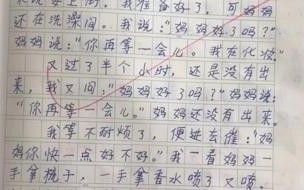 还在洗澡间。我说:“妈妈好了吗?”
妈妈说:“你再等一会儿。我在化妆。”
又过了半个小时,还是没有出
来,我又问:“妈妈好了吗?”妈妈说:
“你再等一会儿。”妈妈还没有出来。
我等不耐烦了,便进去催:“妈
妈你快一点好不好。”我一看妈妈一
手拿梳子,一手拿香水喷了又喷